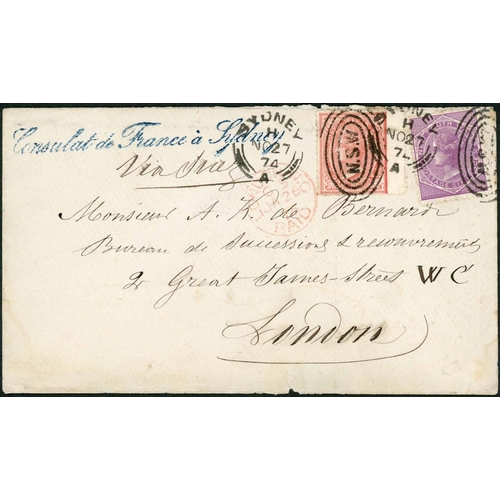 Consulat de France à Sydney
SYDNEY
H
NO 27
74
A
N.S.W
SYDNEY
H
NO 27
74
A
PAID
Monsieur A. K. de Bernardi
Bureau de Successions & recouvrements
2 Great James-Street WC
London